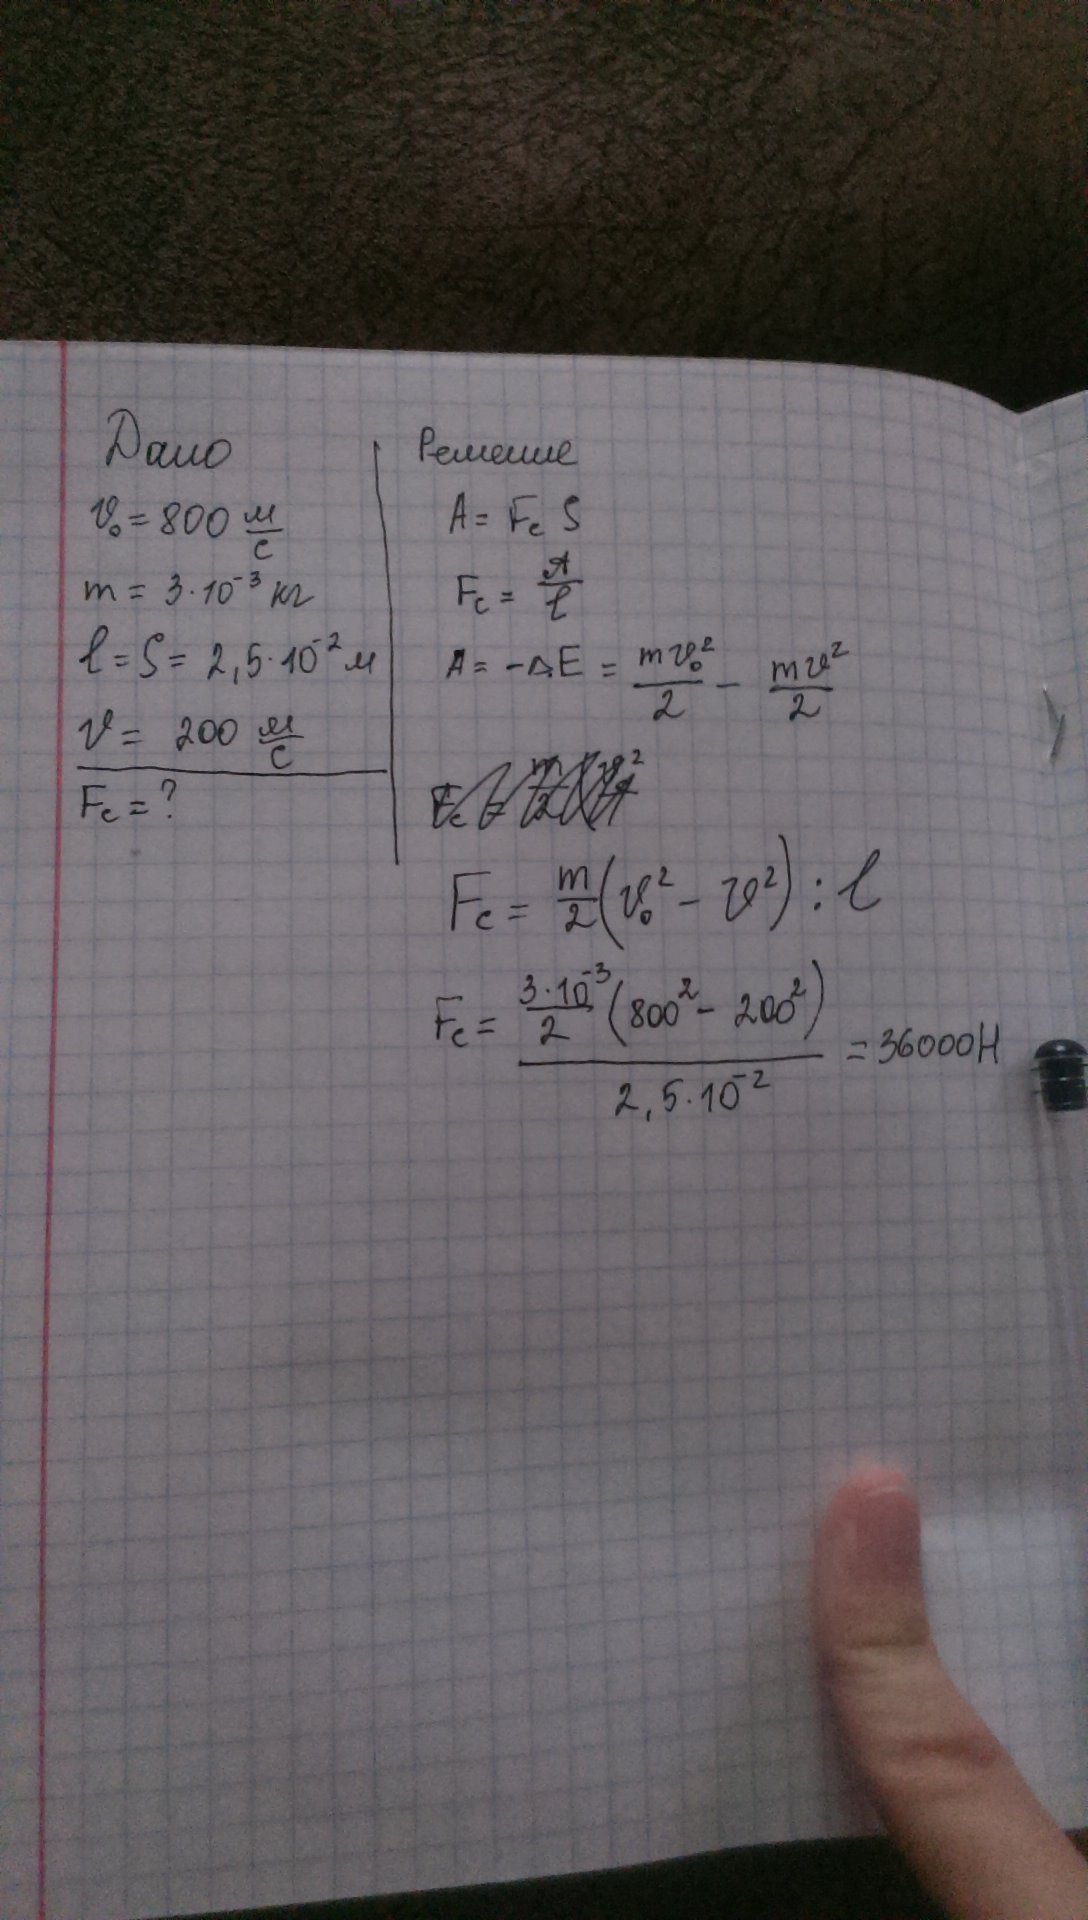 Дано
υ₀ = 800 м/с
m = 3·10⁻³ кг
l = S = 2,5·10⁻² м
υ = 200 м/с
Fc = ?
Решение
A = Fc S
Fc = A/l
A = -ΔE = mυ₀²/2 - mυ²/2
Fc = m/2 (υ₀² - υ²) : l
Fc = 3·10⁻³/2 (800² - 200²) / 2,5·10⁻² = 36000Н